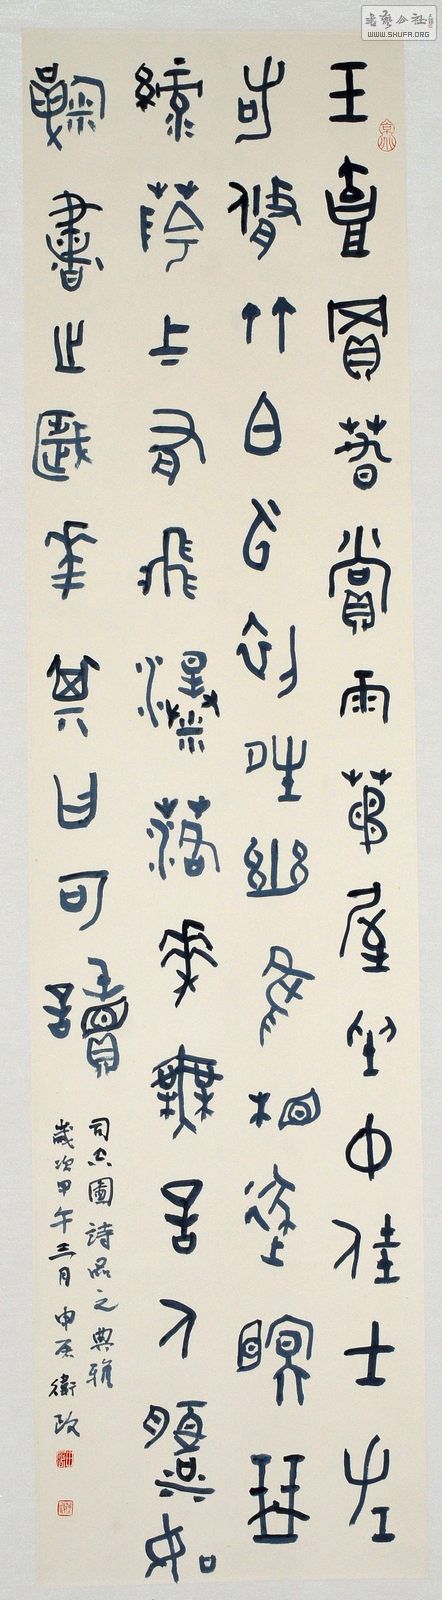 玉壺買春賞雨茆屋坐中佳士左
右修竹白雲初晴幽鳥相逐眠琴
綠陰上有飛瀑落花無言人淡如
菊書之歲華其曰可讀
司空圖詩品之典雅
歲次甲午三月申原衛政
書藝公社
WWW.SHUFA.ORG